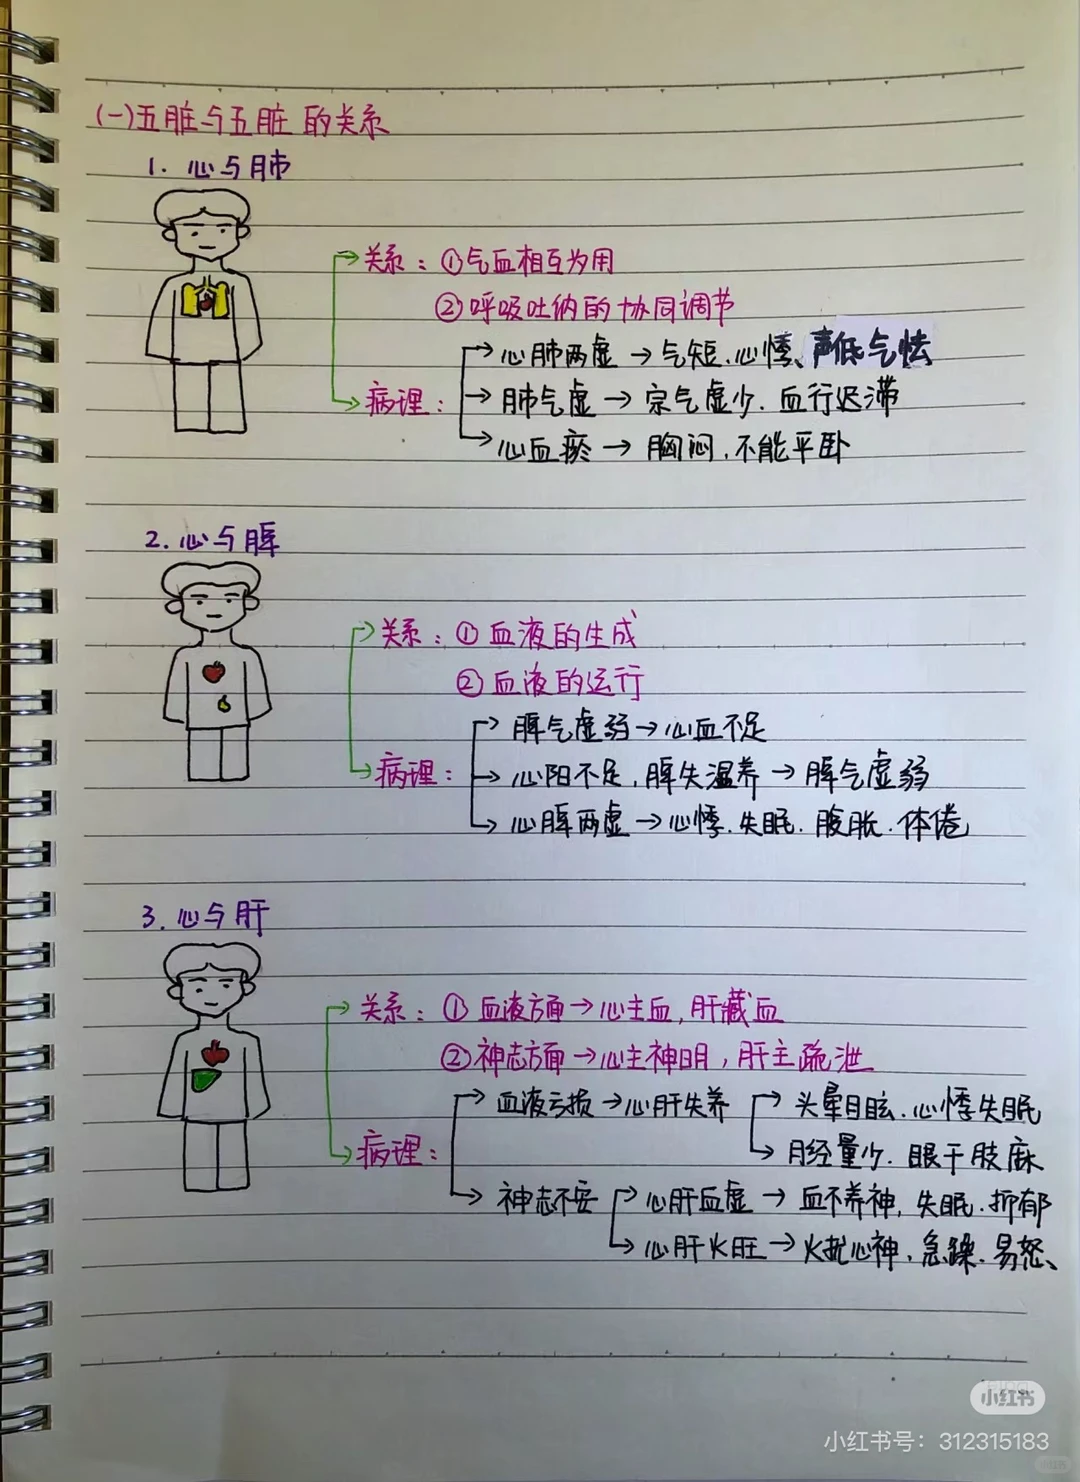 (一)五脏与五脏的关系
1. 心与肺
关系：①气血相互为用
②呼吸吐纳的协同调节
心肺两虚→气短、心悸、声低气怯
病理：
肺气虚→宗气虚少、血行迟滞
心血瘀→胸闷、不能平卧
2. 心与脾
关系：①血液的生成
②血液的运行
脾气虚弱→心血不足
病理：
心阳不足,脾失温养→脾气虚弱
心脾两虚→心悸、失眠、腹胀、体倦
3. 心与肝
关系：①血液方面→心主血,肝藏血
②神志方面→心主神明,肝主疏泄
血液亏损→心肝失养
头晕目眩、心悸失眠
病理：
月经量少、眼干肢麻
神志不安
心肝血虚→血不养神,失眠、抑郁
心肝火旺→火扰心神、急躁、易怒、
小红书
小红书号：312315183